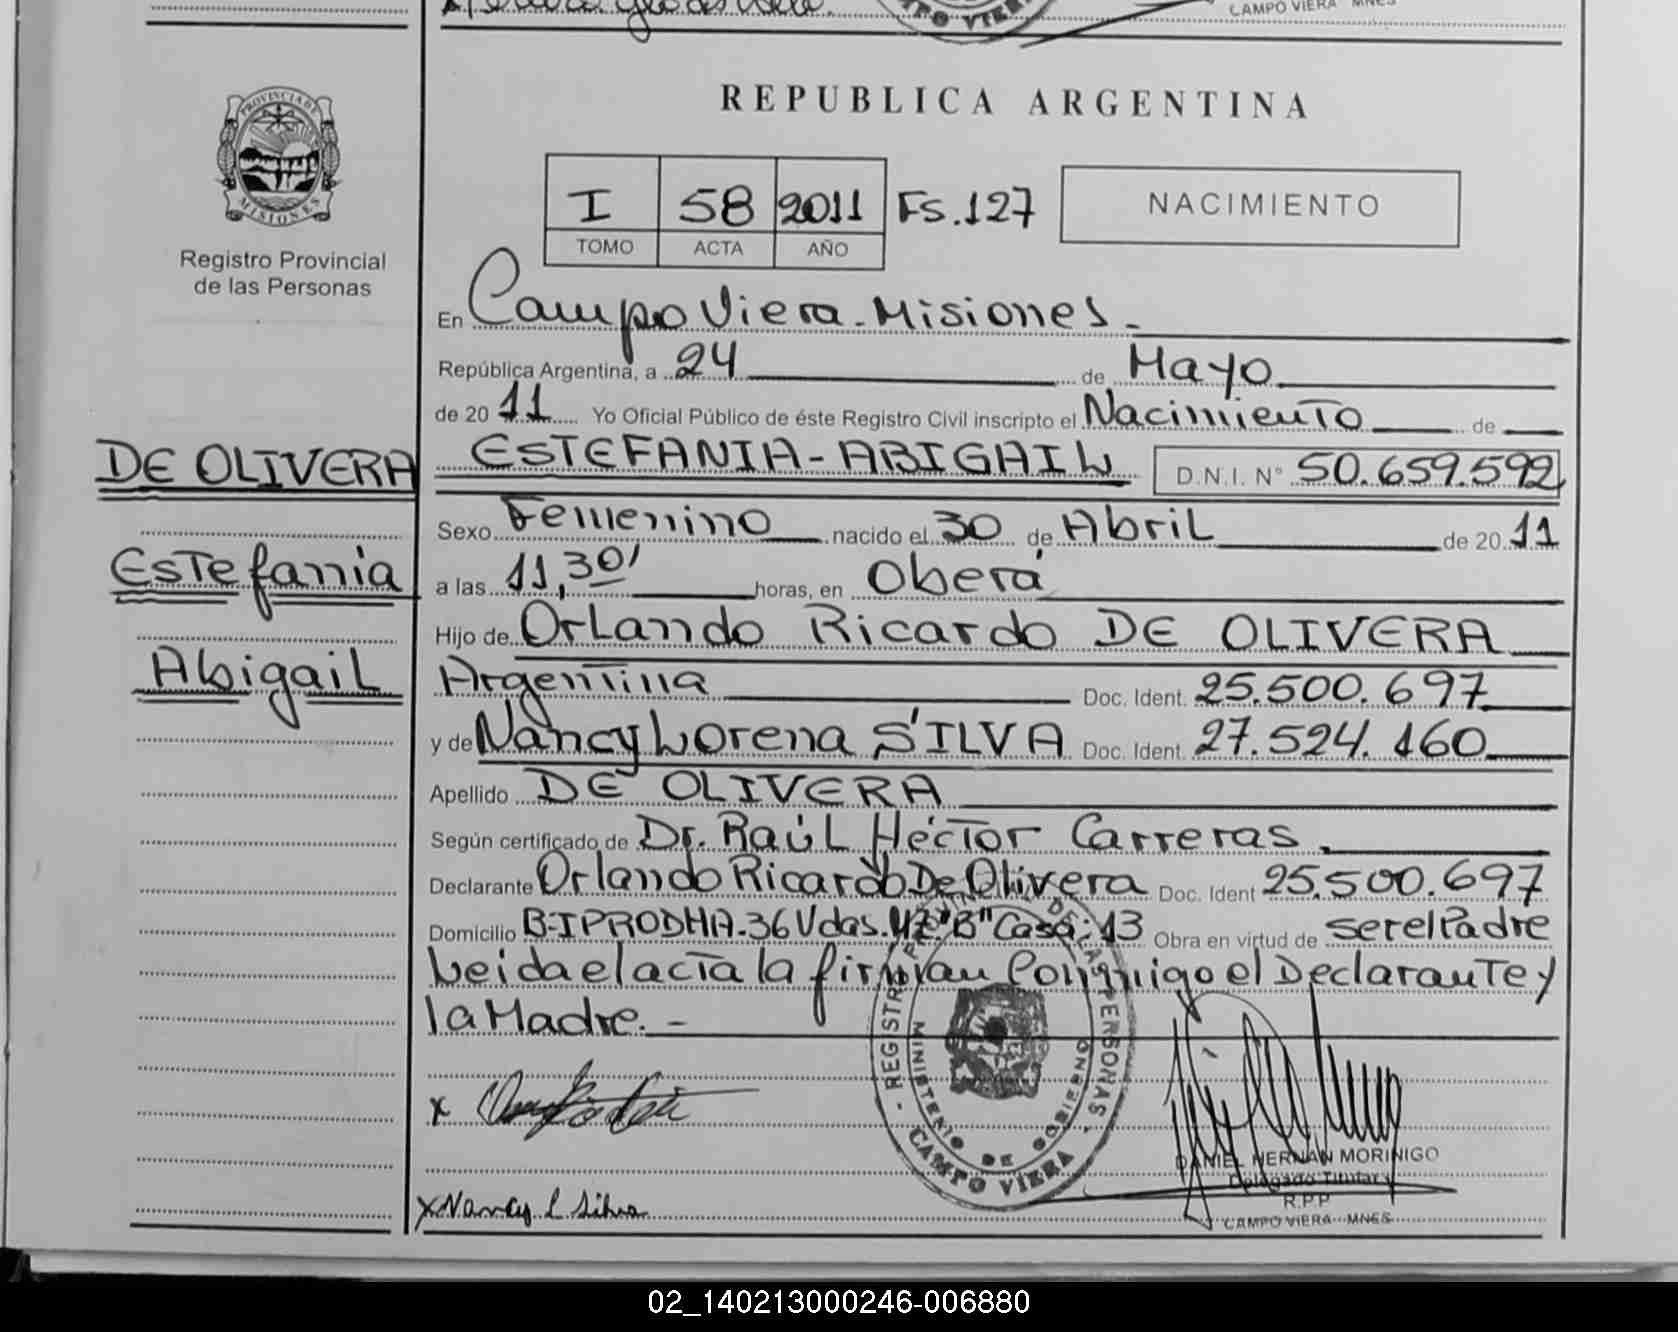 CAMPO VIERA MNES
CAMPO VIERA
PROVINCIA DE
MISIONES
Registro Provincial
de las Personas
REPUBLICA ARGENTINA
I 58 2011 Fs.127
TOMO ACTA AÑO
NACIMIENTO
En Campo Viera - Misiones -
República Argentina, a 24 de Mayo
de 20 11 Yo Oficial Público de éste Registro Civil inscripto el Nacimiento de
DE OLIVERA
ESTEFANIA-ABIGAIL D.N.I. N° 50.659.592
Sexo Femenino nacido el 30 de Abril de 20 11
Estefania
a las 11,30' horas, en Oberá
Hijo de Orlando Ricardo DE OLIVERA
Abigail
Argentina Doc. Ident. 25.500.697
y de Nancy Lorena SILVA Doc. Ident. 27.524.160
Apellido DE OLIVERA
Según certificado de Dr. Raúl Héctor Carreras
Declarante Orlando Ricardo De Olivera Doc. Ident 25.500.697
Domicilio B-IPRODHA-36Vdas.Mz"B"Casa:13 Obra en virtud de ser el Padre
Leida el acta la firman Conmigo el Declarante y
la Madre. -
REGISTRO DE LAS PERSONAS
MINISTERIO DE GOBIERNO
CAMPO VIERA
x
DANIEL HERNAN MORINIGO
Delegado Titular
R.P.P
x Nancy L Silva
CAMPO VIERA - MNES
02_140213000246-006880